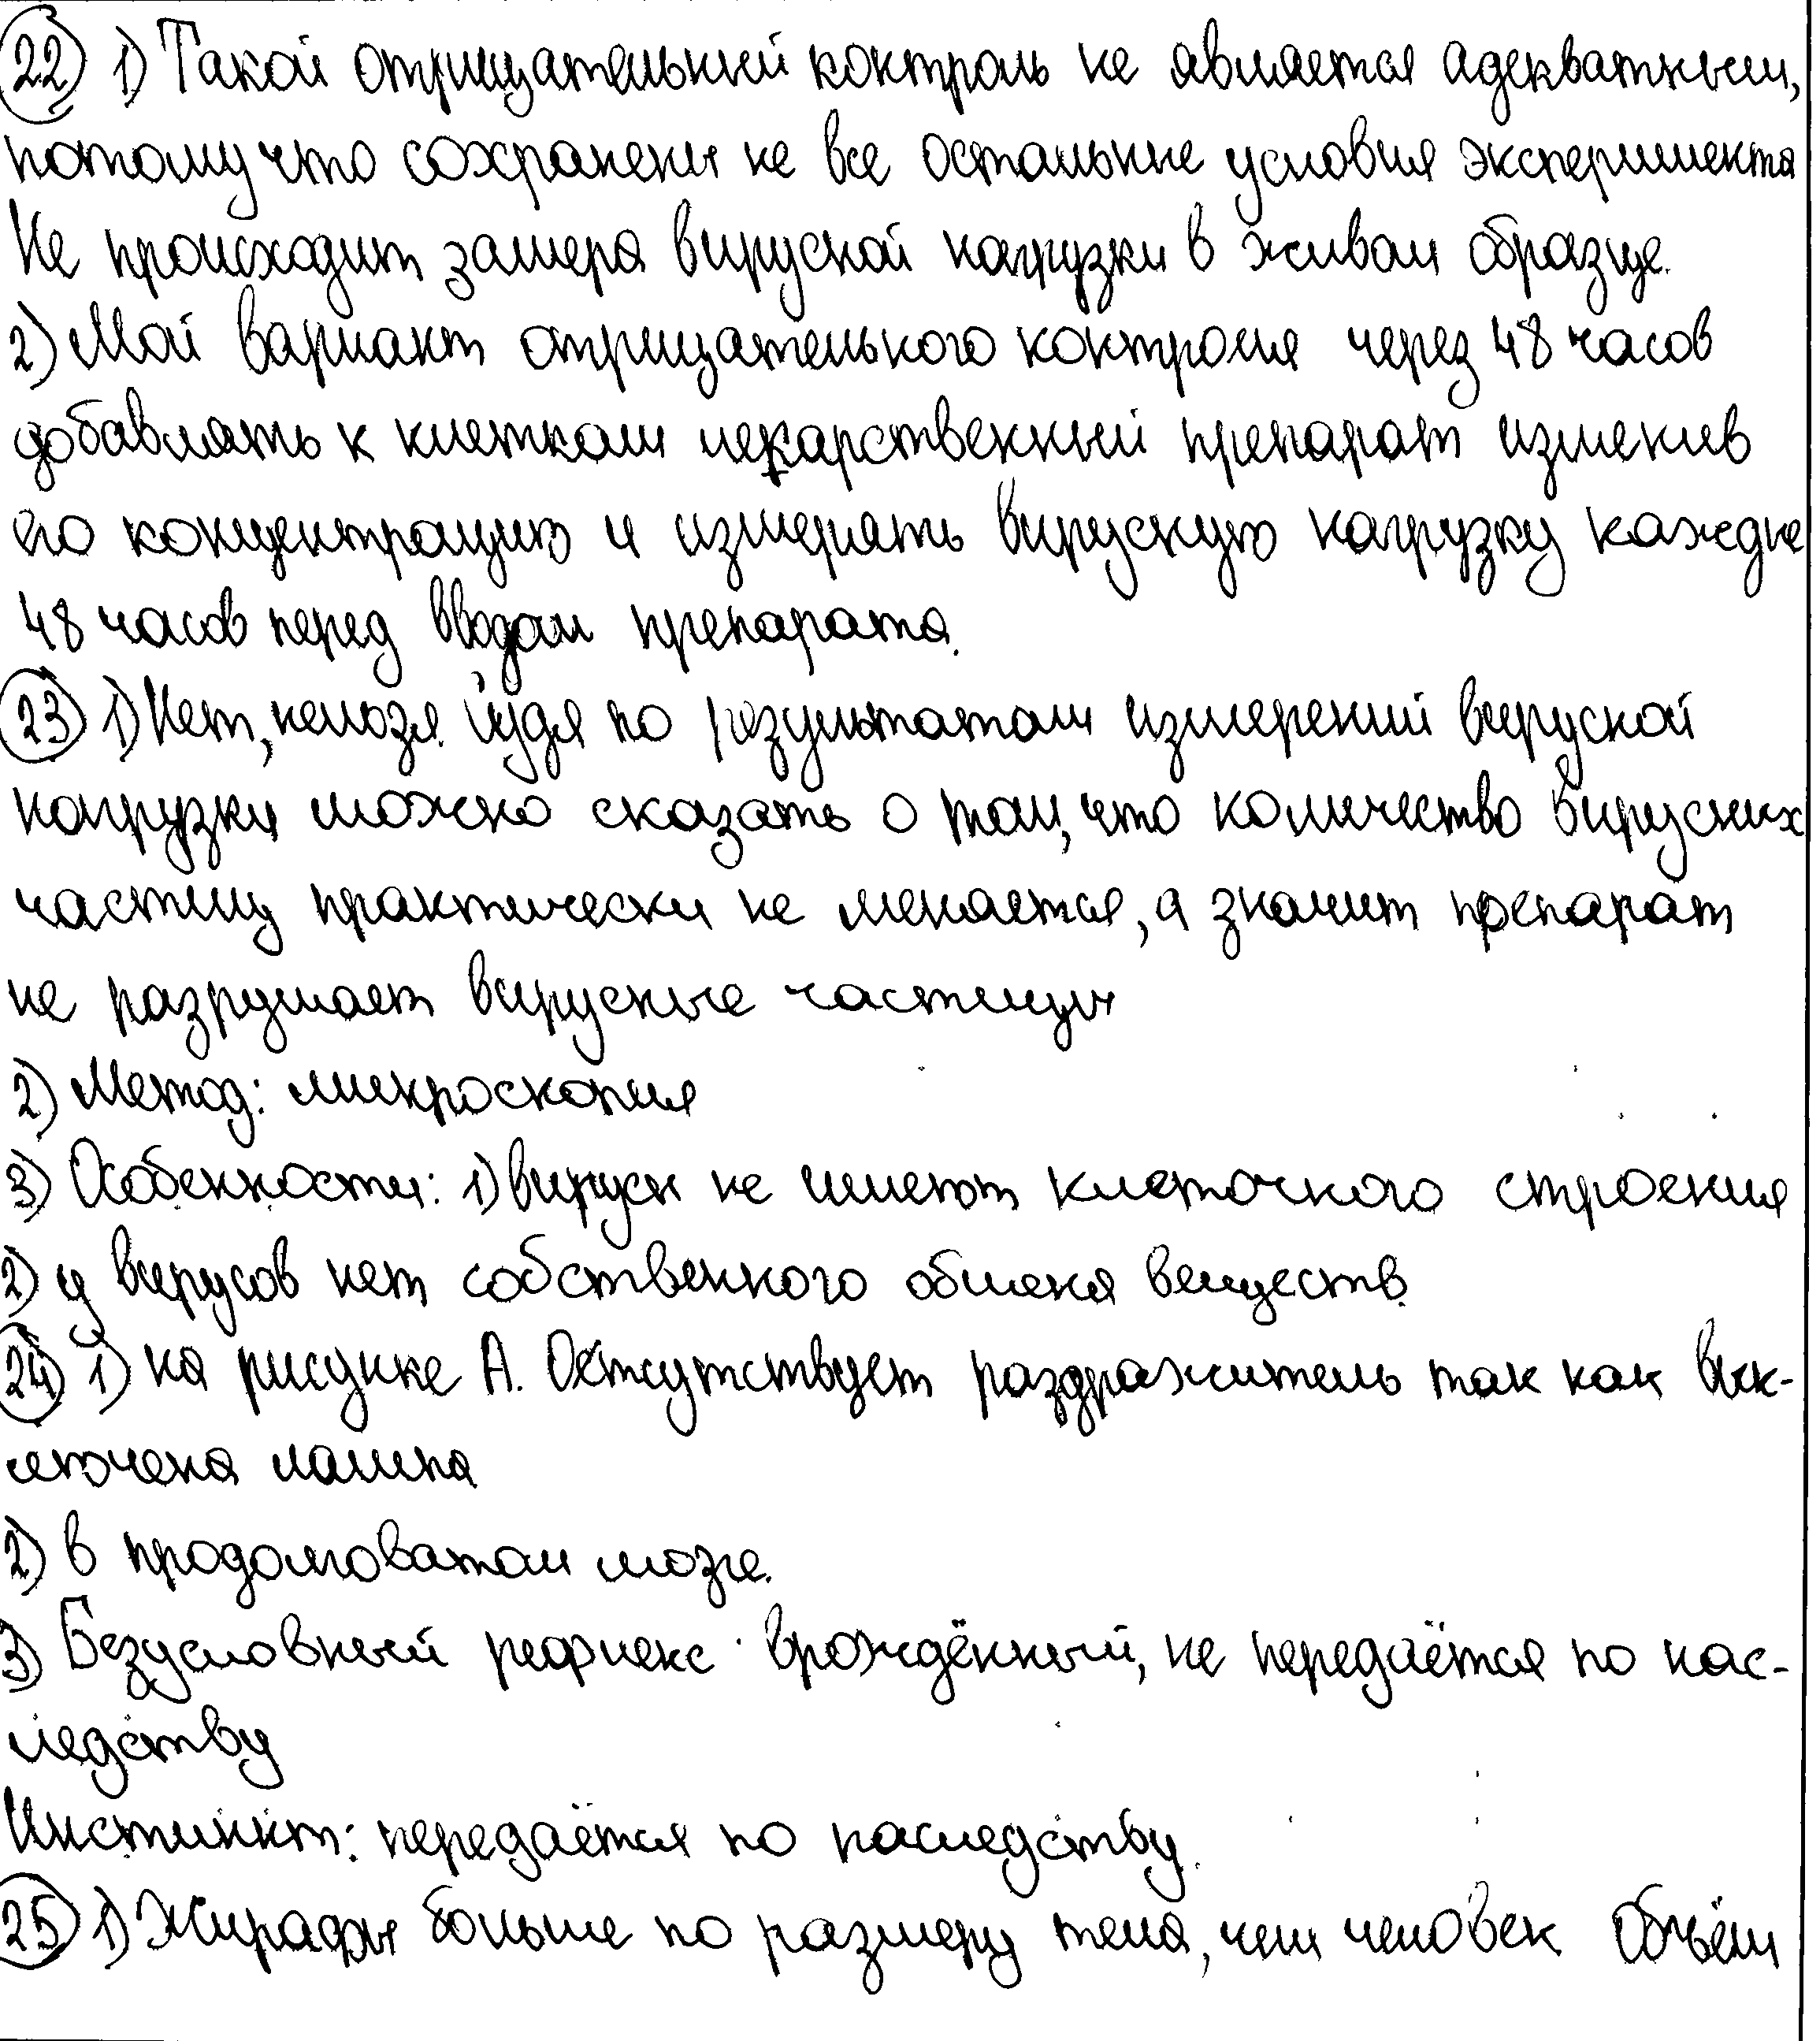 22 1) Такой отрицательный контроль не является адекватным,
потому что сохранены не все остальные условия эксперимента
Не происходит замера вирусной нагрузки в живом образце.
2) Мой вариант отрицательного контроля через 48 часов
добавлять к клеткам лекарственный препарат изменив
его концентрацию и измерять вирусную нагрузку каждые
48 часов перед вводом препарата.
23 1) Нет, нельзя. Судя по результатам измерений вирусной
нагрузки можно сказать о том, что количество вирусных
частиц практически не меняется, а значит препарат
не разрушает вирусные частицы
2) Метод: микроскопия
3) Особенности: 1) вирусы не имеют клеточного строения
2) у вирусов нет собственного обмена веществ.
24 1) на рисунке А. Отсутствует раздражитель так как вык-
лючена лампа
2) в продолговатом мозге.
3) Безусловный рефлекс врождённый, не передаётся по нас-
ледству
Инстинкт: передаётся по наследству.
25 1) Жирафы больше по размеру тела, чем человек Объём